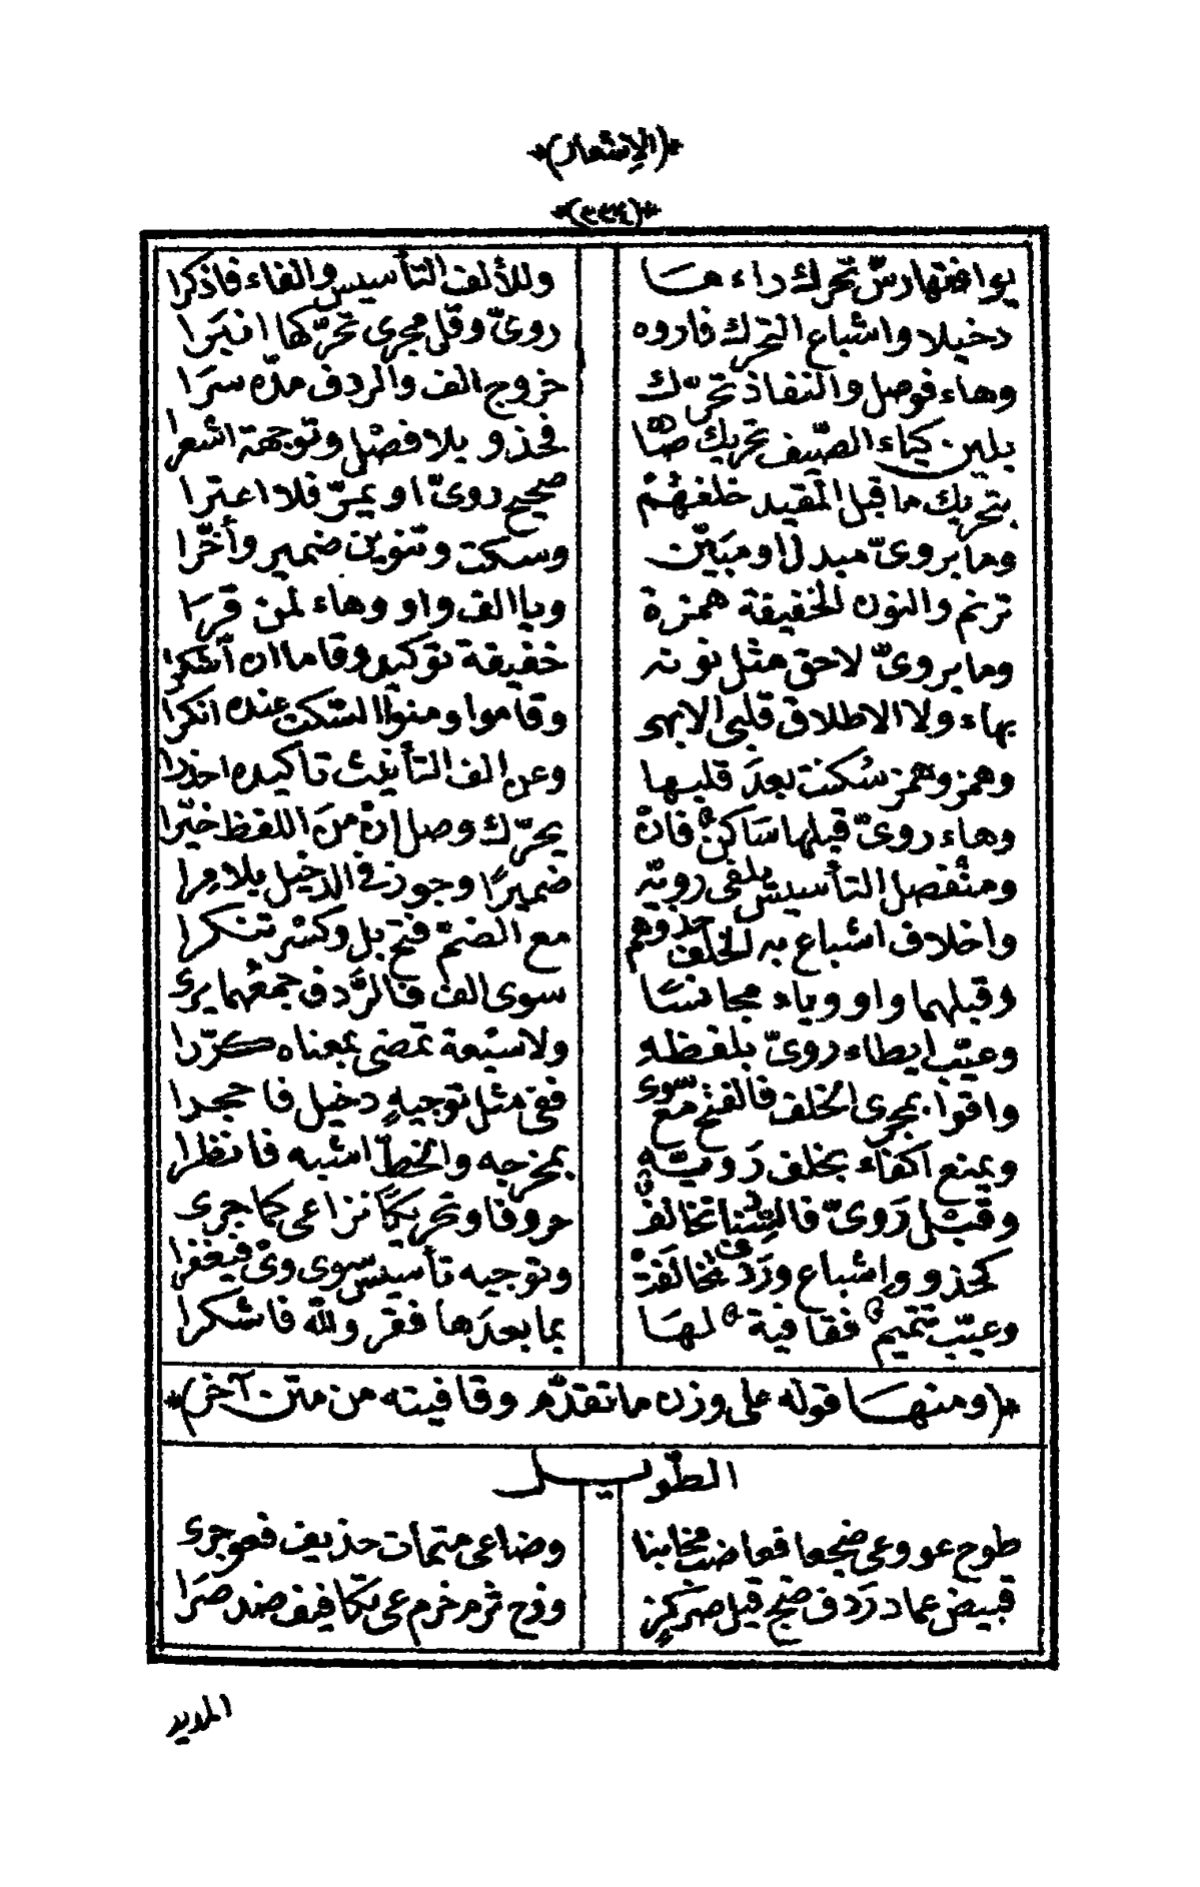 *(الإشعار)*
*(٣٣٤)*
يوافقها رسّ تحرك داء ها وللألف التأسيس والفاء فاذكرا
دخيلا واشباع التحرك فاروه رويّ وقل مجرى تحرّكها انبرا
وهاء فوصل والنفاذ تحرّك خروج الف والردف مدّه سرا
بلين كياء الصّيف تحريك فحذو بلا فضل وتوجهة اشعرا
بتحريك ما قبل المقيد خلفهم صحيح رويّ او يمرّ فلا اعترا
وما بروىّ مبدل او مبيّن وسكت وتنوين ضمير وأخّرا
ترنم والنون الخفيفة همزة ويا الف واو وهاء لمن قرا
وما بروىّ لاحق مثل نونه خفيفة توكيد وقاما ان أشكرا
بهاء ولا الاطلاق قلبى الابهى وقاموا ومنوا السّكت عنده انكرا
وهمز وهمز سُكنت بعدَ قلبها وعن الف التأنيث تأكيده احذرا
وهاء رويّ قبلها سَاكنٌ فانْ يحرّك وصل إنْ منَ اللفظ خيّرا
ومنْفصل التأسيس يلفى رويّه ضميرًا وجوز في الدخيل بلا مِرا
واخلاف اشباع به الخلف حذوهم مع الضمّ فتح بل وكسْر تنكرا
وقبلهما واو وياء مجانسَا سوى الف فالرّدف جمعُهما يرى
وعيّب ايطاء رويّ بلفظه ولا سبعة تمضى بمعناه كرّرا
واقوا بمجرى الخلف فالفتح مع سوى ففى مثل توجيهٍ دخيل فا حجرا
ويمنع اكفاء بخلف رَويّه بمخرجه والخطّ اشبه فانظرا
وقبْل رَوىّ فالسِّناد تخالفٌ حروفا وتحريكًا نزاعى كما جرى
كحذو وإشباع ورَدْف تخالفَتْ وتوجيه تأسيس سوى وىْ فيغفرا
وعيّب تتميم فقافيةٌ لهَا بما بعدَها فقر ولله فاشكرا
*(ومنهــا قوله على وزن ما تقدّم وقافيته من متن آخر)*
الطّويــل
طوح عو وعى ضجعا قعا ضب مخابنا وضاعى متمات حذيف فعو جرى
قبيض عماد رَدف ضجح قبل صر كزٍ وزح ثرم خرم عى بكا فيف ضد صرَا
المديد